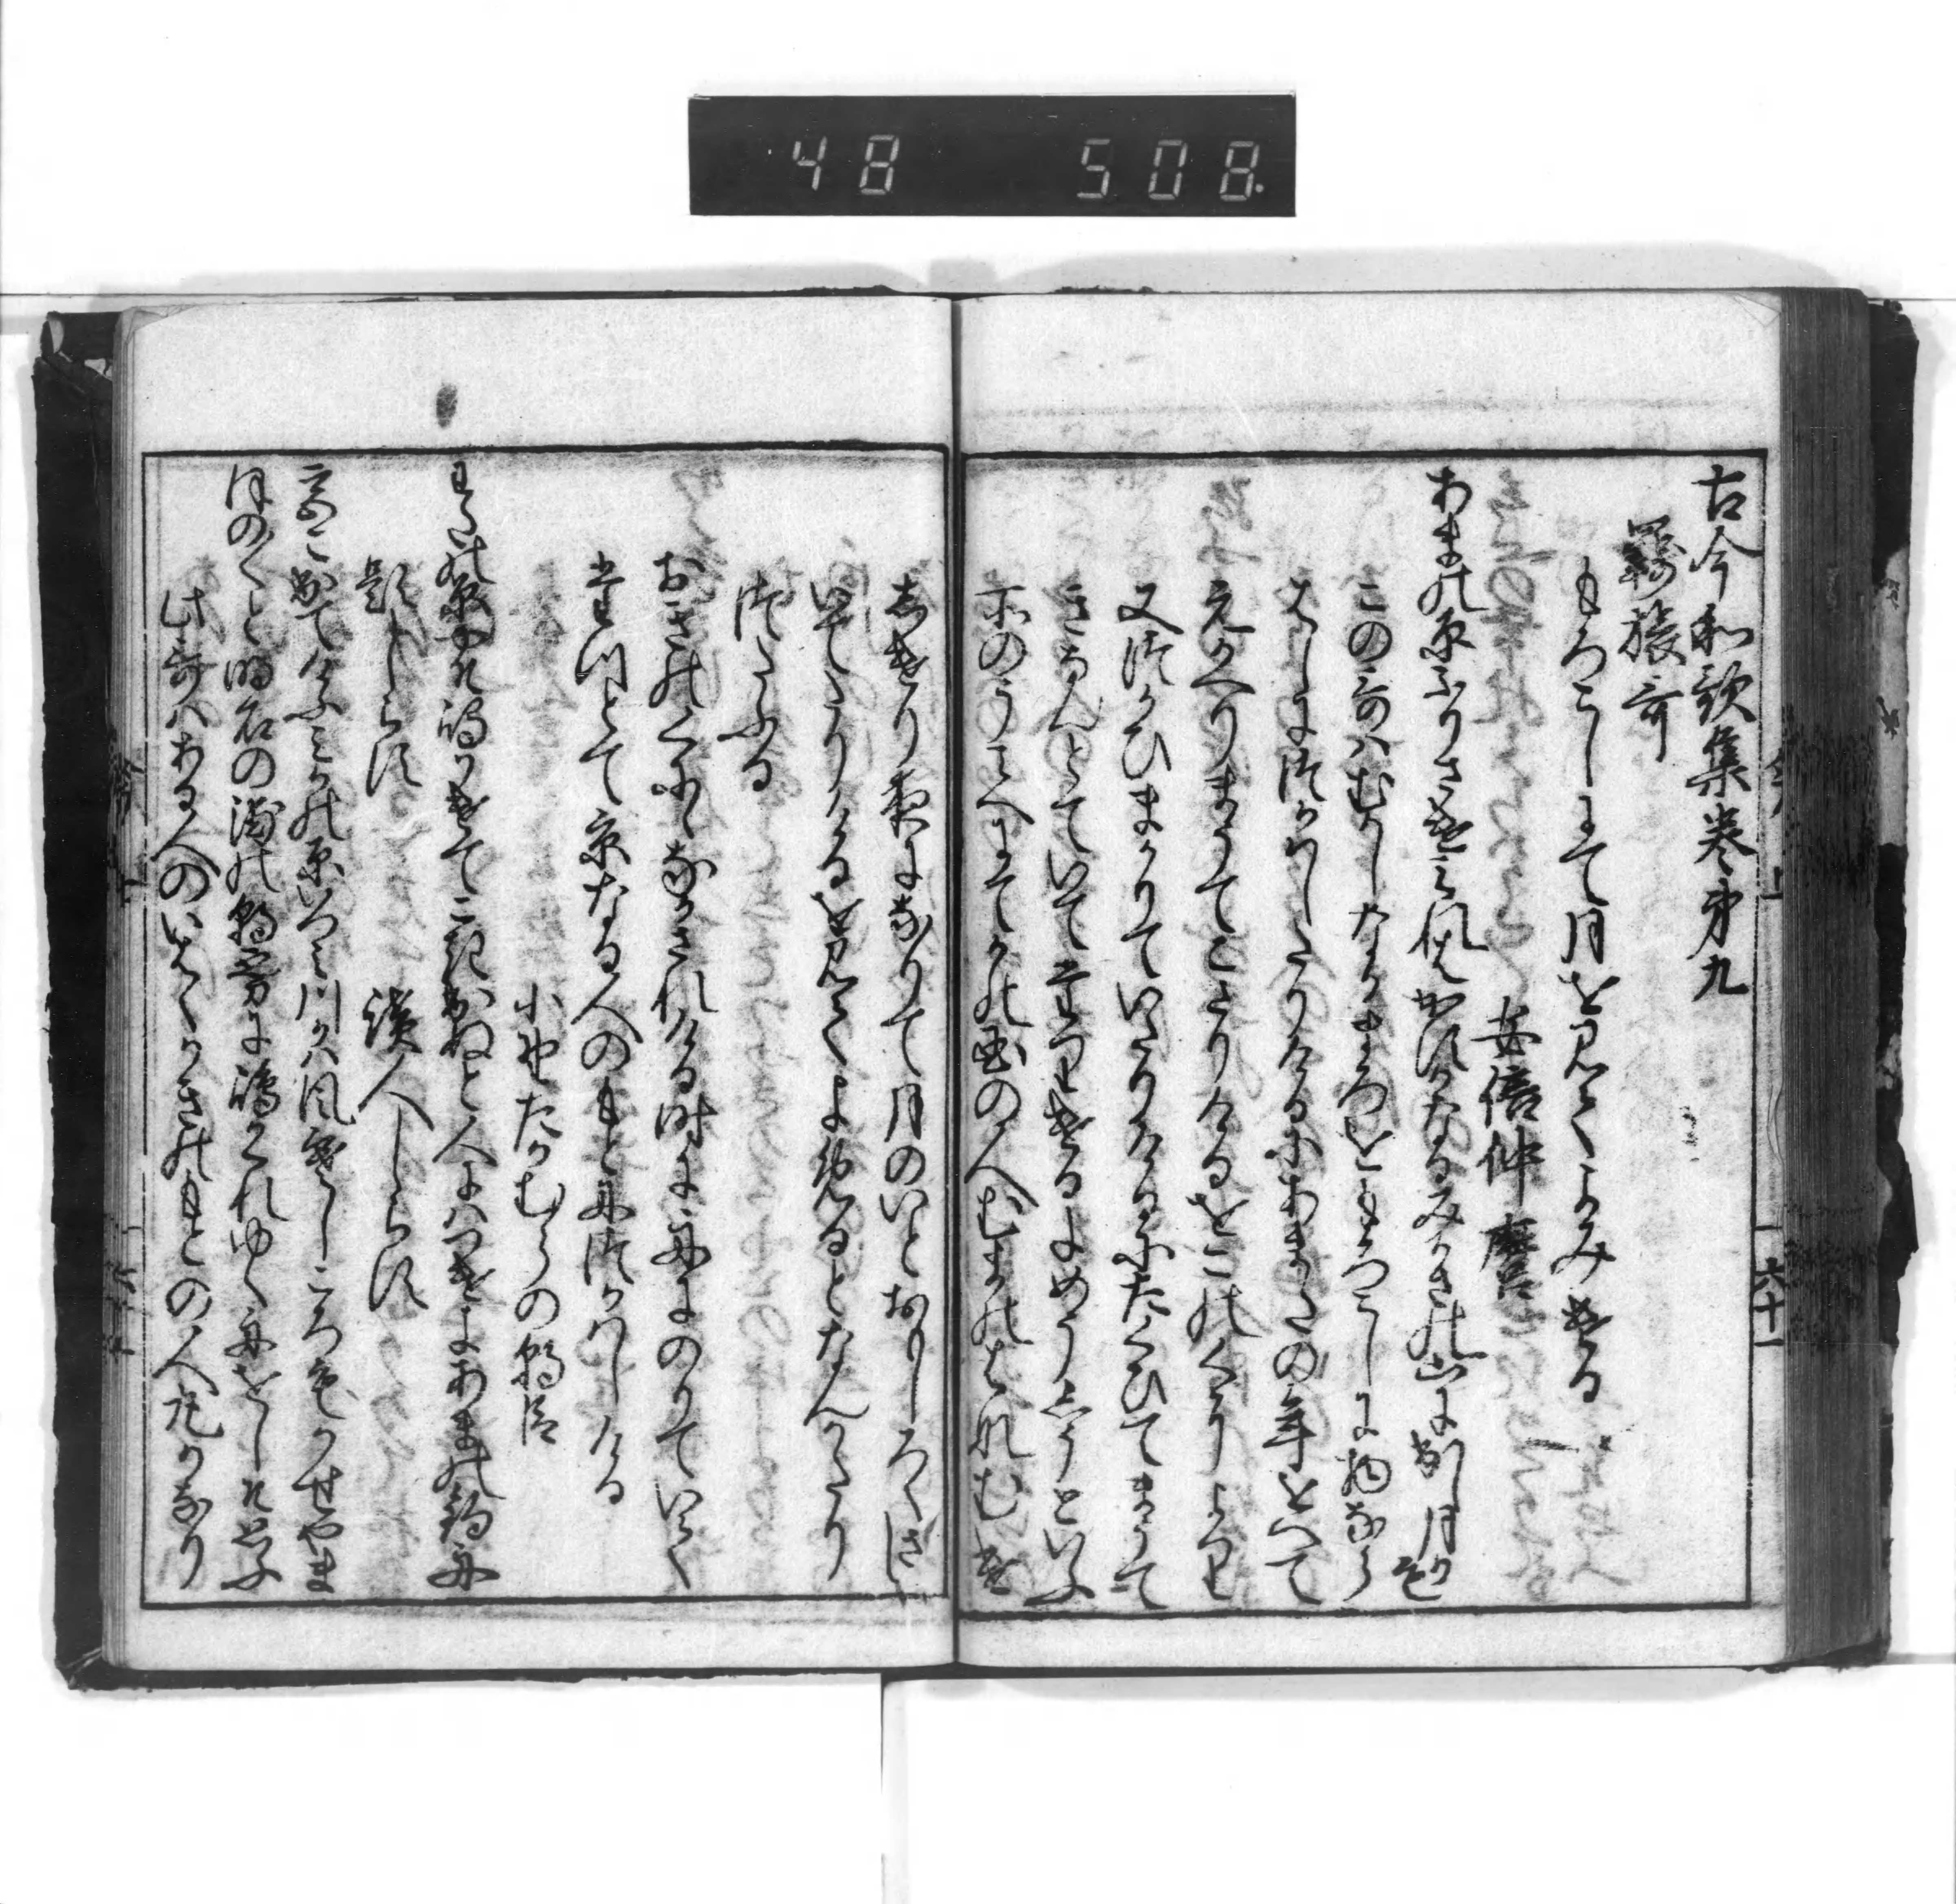 48 508.
古今和歌集巻第九
羇旅哥
もろこしにて月を見てよみける
安倍仲麿
あまの原ふりさけみれはかすかなるみかさの山に出し月かも
この哥はむかしなかまろをもろこしに物なら
はしにつかはしたりけるにあまたの年をへて
えかへりまうてこさりけるをこのくにより
又つかひまかりていたりけるにたくひてまうて
きなんとていてたちけるにめいしうといふ
所のうみへにてかの国の人むまのはなむけ
しけり夜になりて月のいとおもしろくさし
いてたりけるを見てよめるとなんかたり
つたふる
おきのくにになかされける時に舟にのりていてたつ
とて京なる人のもとにつかはしける
小野たかむらの朝臣
わたの原やそ嶋かけてこき出ぬと人にはつけよあまの釣舟
題しらす
読人しらす
宮こ出てけふみかの原いつみ川かは風寒しころもかせやま
ほの〱と明石の浦の朝霧に嶋かくれゆく舟をしそ思ふ
此哥はある人のいはくかきのもとの人丸か也
六十一